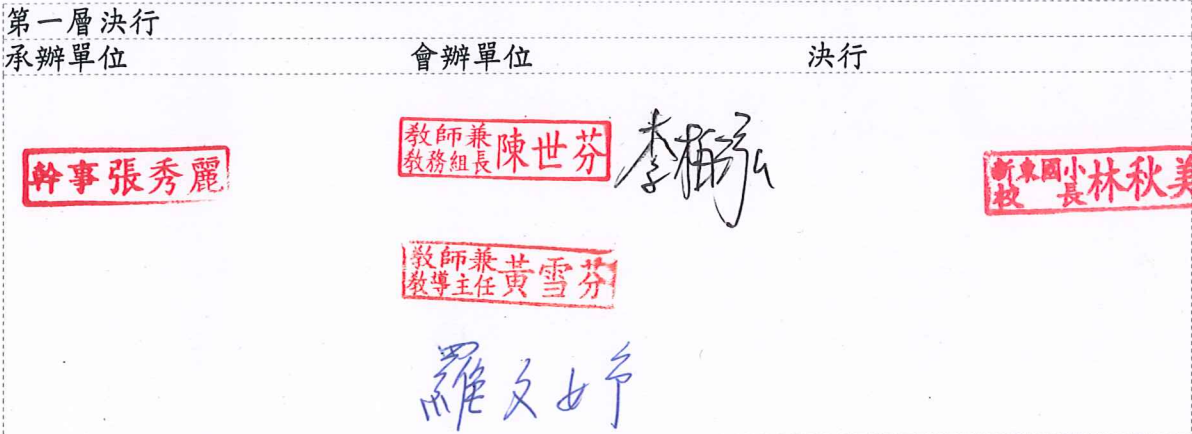 第一層決行
承辦單位 會辦單位 決行
幹事張秀麗
教師兼教務組長陳世芬
新東國小校長林秋美
教師兼教導主任黃雪芬
羅文妤